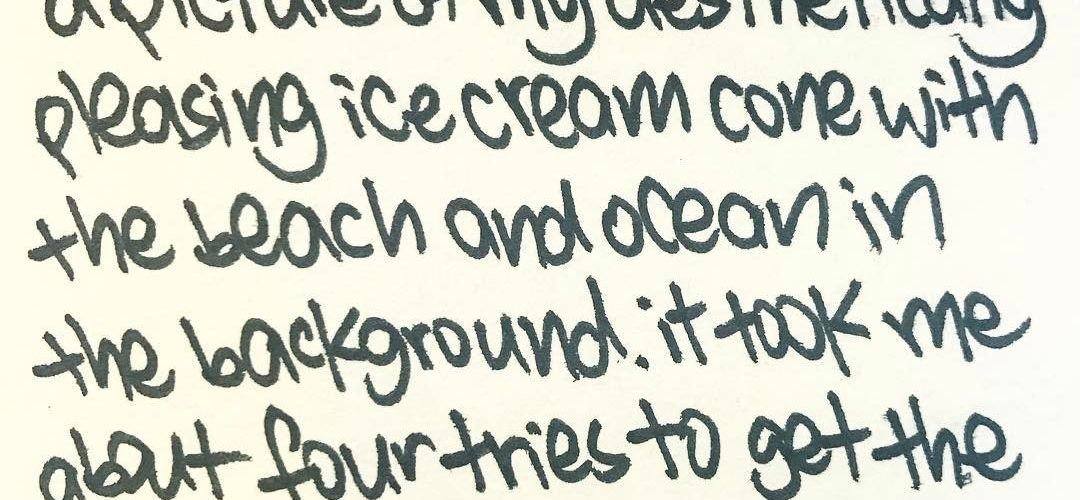 a picture of my aesthetically
pleasing ice cream cone with
the beach and ocean in
the background. it took me
about four tries to get the